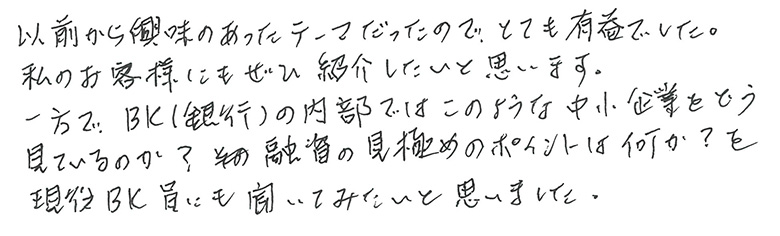 以前から興味のあったテーマだったので、とても有益でした。
私のお客様にもぜひ紹介したいと思います。
一方で、BK(銀行)の内部ではこのような中小企業をどう
見ているのか？融資の見極めのポイントは何か？を
現役BK員にも聞いてみたいと思いました。